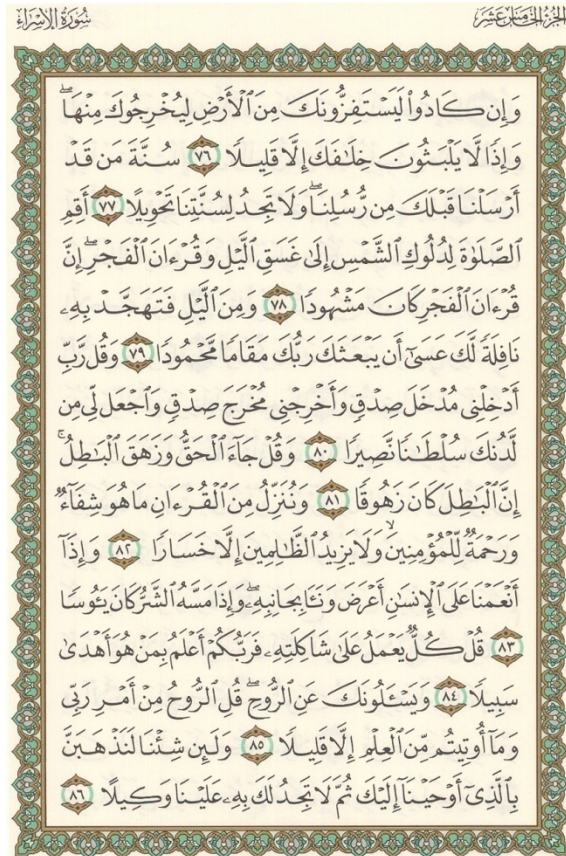 الجزء الخامس عشر
سورة الإسراء
وَإِن كَادُوا۟ لَيَسْتَفِزُّونَكَ مِنَ ٱلْأَرْضِ لِيُخْرِجُوكَ مِنْهَا ۖ
وَإِذًا لَّا يَلْبَثُونَ خِلَـٰفَكَ إِلَّا قَلِيلًا ٧٦ سُنَّةَ مَن قَدْ
أَرْسَلْنَا قَبْلَكَ مِن رُّسُلِنَا ۖ وَلَا تَجِدُ لِسُنَّتِنَا تَحْوِيلًا ٧٧ أَقِمِ
ٱلصَّلَوٰةَ لِدُلُوكِ ٱلشَّمْسِ إِلَىٰ غَسَقِ ٱلَّيْلِ وَقُرْءَانَ ٱلْفَجْرِ ۖ إِنَّ
قُرْءَانَ ٱلْفَجْرِ كَانَ مَشْهُودًا ٧٨ وَمِنَ ٱلَّيْلِ فَتَهَجَّدْ بِهِۦ
نَافِلَةً لَّكَ عَسَىٰٓ أَن يَبْعَثَكَ رَبُّكَ مَقَامًا مَّحْمُودًا ٧٩ وَقُل رَّبِّ
أَدْخِلْنِى مُدْخَلَ صِدْقٍ وَأَخْرِجْنِى مُخْرَجَ صِدْقٍ وَٱجْعَل لِّى مِن
لَّدُنكَ سُلْطَـٰنًا نَّصِيرًا ٨٠ وَقُلْ جَآءَ ٱلْحَقُّ وَزَهَقَ ٱلْبَـٰطِلُ ۚ
إِنَّ ٱلْبَـٰطِلَ كَانَ زَهُوقًا ٨١ وَنُنَزِّلُ مِنَ ٱلْقُرْءَانِ مَا هُوَ شِفَآءٌ
وَرَحْمَةٌ لِّلْمُؤْمِنِينَ ۙ وَلَا يَزِيدُ ٱلظَّـٰلِمِينَ إِلَّا خَسَارًا ٨٢ وَإِذَآ
أَنْعَمْنَا عَلَى ٱلْإِنسَـٰنِ أَعْرَضَ وَنَـَٔا بِجَانِبِهِۦ ۖ وَإِذَا مَسَّهُ ٱلشَّرُّ كَانَ يَـُٔوسًا
٨٣ قُلْ كُلٌّ يَعْمَلُ عَلَىٰ شَاكِلَتِهِۦ فَرَبُّكُمْ أَعْلَمُ بِمَنْ هُوَ أَهْدَىٰ
سَبِيلًا ٨٤ وَيَسْـَٔلُونَكَ عَنِ ٱلرُّوحِ ۖ قُلِ ٱلرُّوحُ مِنْ أَمْرِ رَبِّى
وَمَآ أُوتِيتُم مِّنَ ٱلْعِلْمِ إِلَّا قَلِيلًا ٨٥ وَلَئِن شِئْنَا لَنَذْهَبَنَّ
بِٱلَّذِىٓ أَوْحَيْنَآ إِلَيْكَ ثُمَّ لَا تَجِدُ لَكَ بِهِۦ عَلَيْنَا وَكِيلًا ٨٦